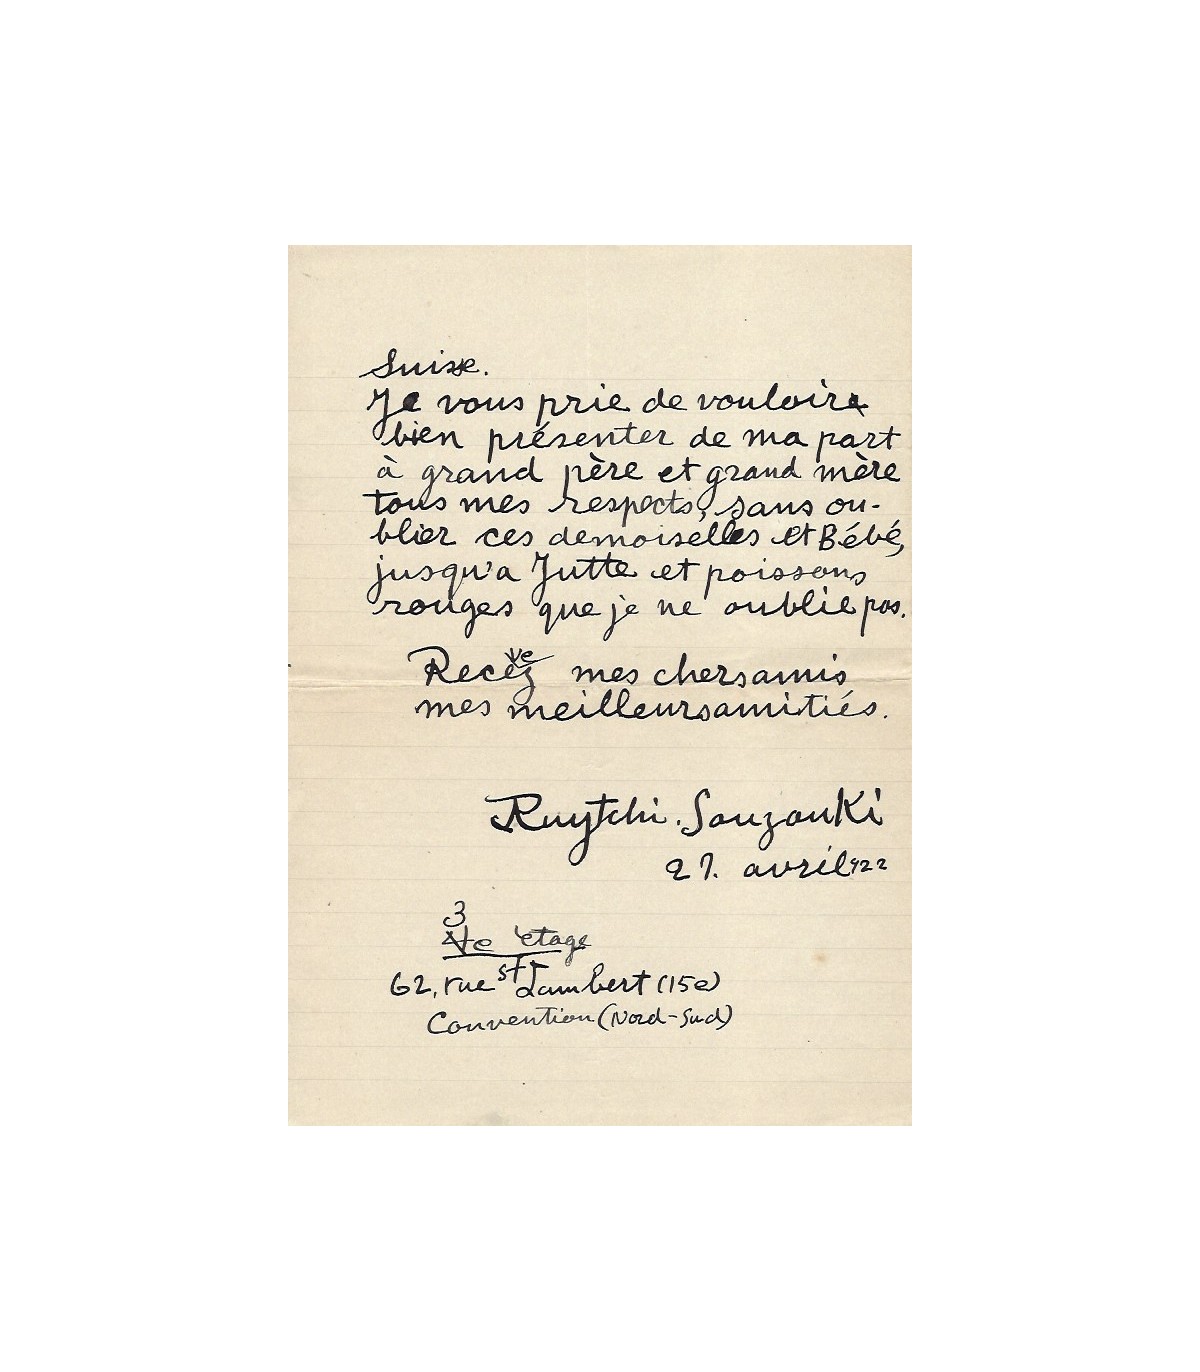 Suisse.
Je vous prie de vouloir
bien présenter de ma part
à grand père et grand mère
tous mes respects, sans ou-
blier ces demoiselles et Bébé,
jusqu'a Jutte et poissons
rouges que je ne oublie pas.
Recevez mes chers amis
mes meilleurs amitiés.
Ruytchi. Souzouki
27. avril 922
3e étage
62, rue St Lambert (15e)
Convention (Nord-Sud)